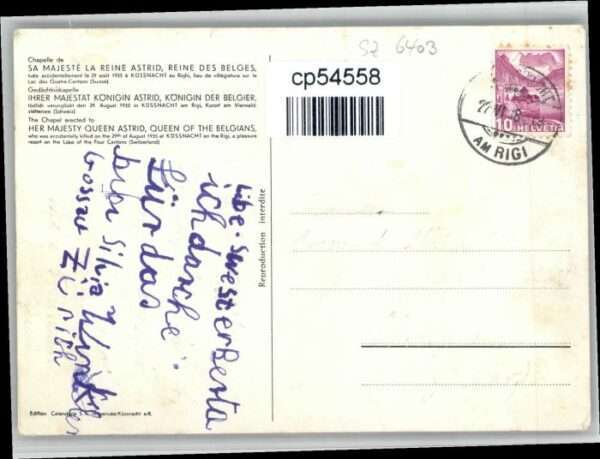 Chapelle de
SA MAJESTÉ LA REINE ASTRID, REINE DES BELGES,
tuée accidentellement le 29 août 1935 à KUSSNACHT au Righi, lieu de villégiature sur le
Lac des Quatre-Cantons (Suisse)
Gedächtniskapelle
IHRER MAJESTÄT KÖNIGIN ASTRID, KÖNIGIN DER BELGIER,
tödlich verunglückt den 29. August 1935 in KÜSSNACHT am Rigi, Kurort am Vierwald-
stättersee (Schweiz)
The Chapel erected to
HER MAJESTY QUEEN ASTRID, QUEEN OF THE BELGIANS,
who was accidentally killed on the 29th of August 1935 at KÜSSNACHT on the Rigi, a pleasure
resort on the Lake of the Four Cantons (Switzerland)
SZ 6403
cp54558
10 HELVETIA
AM RIGI
Reproduction interdite
libe. swester Berta
ich danche
für das
Silvia
Gossau Zürich
Edition